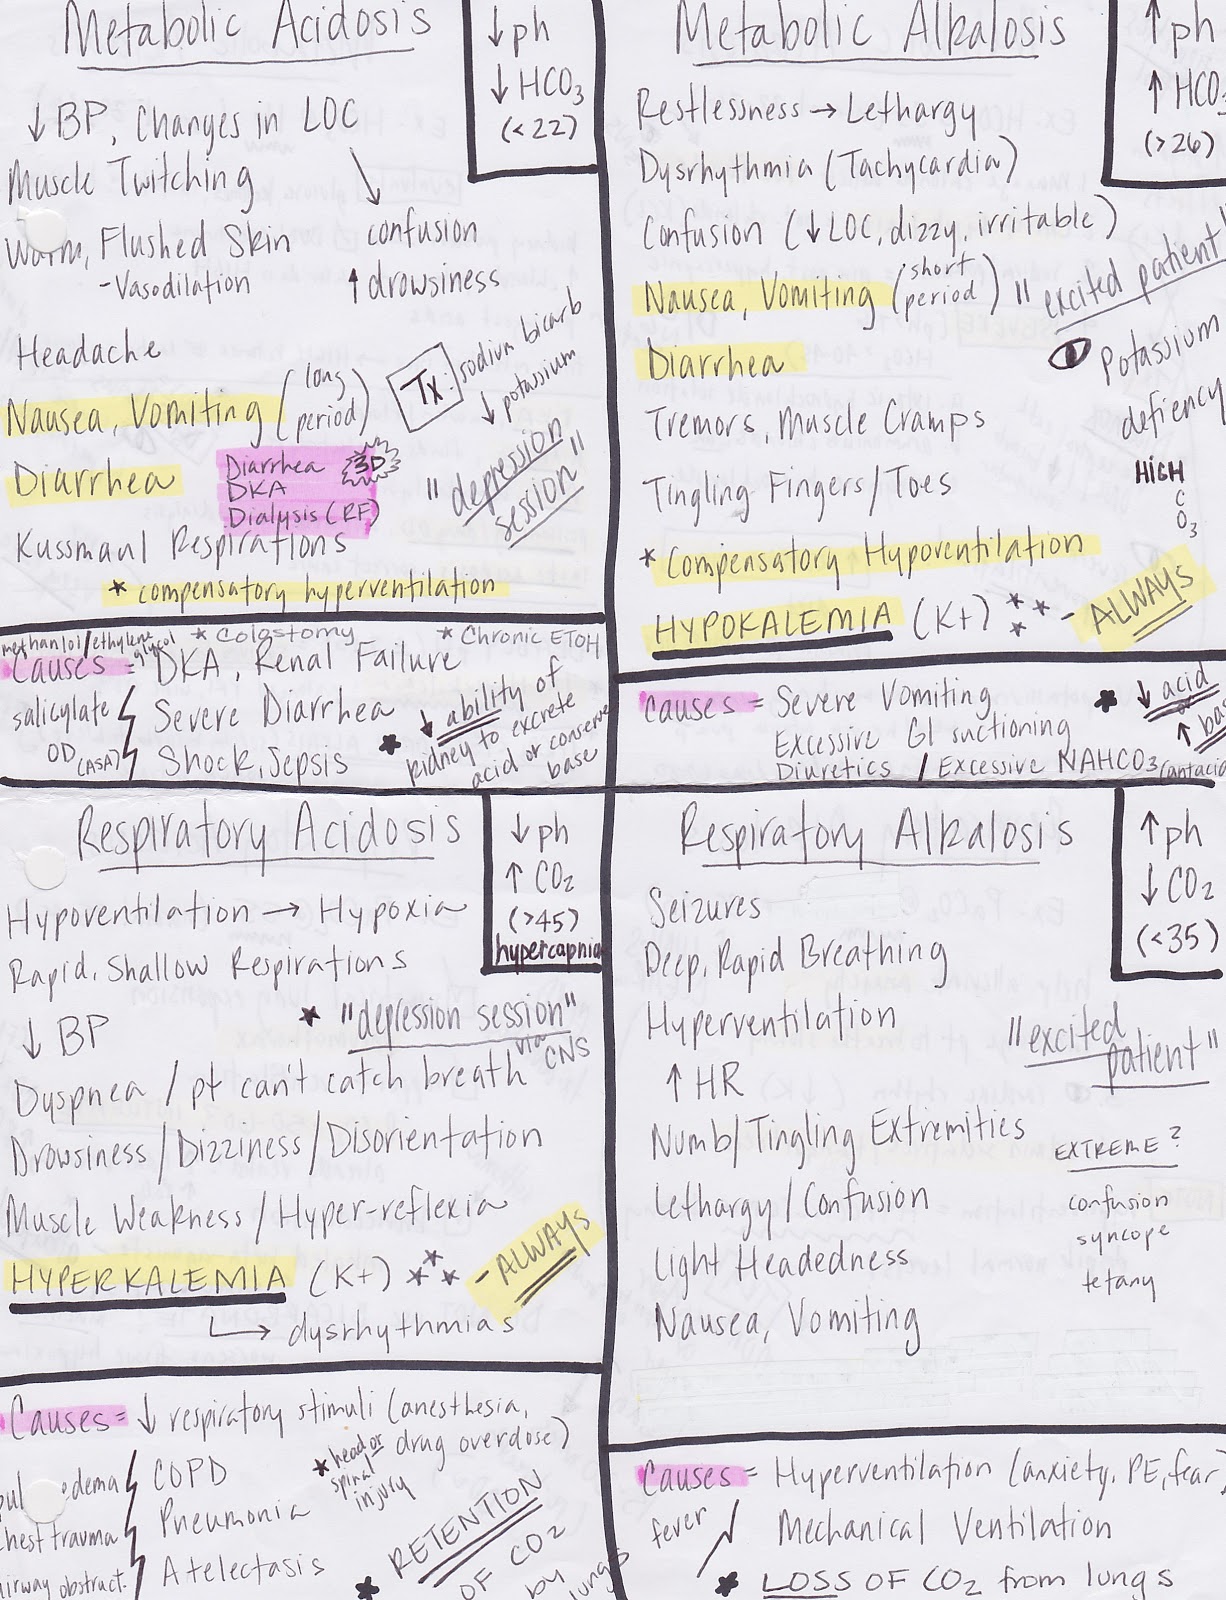 Metabolic Acidosis
↓ ph
↓ HCO3
(<22)
↓ BP, Changes in LOC
Muscle Twitching
confusion
↑ drowsiness
Warm, Flushed Skin
- Vasodilation
Headache
Tx:
sodium bicarb
↓ potassium
Nausea, Vomiting (long period)
Diarrhea
Diarrhea
DKA
Dialysis (RF)
3D
"depression
session"
Kussmaul Respirations
* compensatory hyperventilation
methanlol/ethylene glycol
* Colostomy
* Chronic ETOH
Causes = DKA, Renal Failure
salicylate
OD (ASA)
Severe Diarrhea
Shock, Sepsis
* ↓ ability of
kidney to excrete
acid or conserve
base
Metabolic Alkalosis
↑ ph
↑ HCO3
(>26)
Restlessness → Lethargy
Dysrhythmia (Tachycardia)
Confusion (↓ LOC, dizzy, irritable)
Nausea, Vomiting (short period)
"excited patient"
Diarrhea
Potassium
defiency
Tremors, Muscle Cramps
HiGH
C
O3
Tingling Fingers/Toes
* Compensatory Hypoventilation
HYPOKALEMIA (K+) *** - ALWAYS
Causes = Severe Vomiting
Excessive GI suctioning
Diuretics / Excessive NAHCO3 (antacid
* ↓ acid
or
↑ bas
Respiratory Acidosis
↓ ph
↑ CO2
(>45)
hypercapnia
Hypoventilation → Hypoxia
Rapid, Shallow Respirations
* "depression session"
via CNS
↓ BP
Dyspnea / pt can't catch breath
Drowsiness / Dizziness / Disorientation
Muscle Weakness / Hyper-reflexia
HYPERKALEMIA (K+) *** - ALWAYS
→ dysrhythmias
Causes = ↓ respiratory stimuli (anesthesia,
drug overdose)
* head or
spinal
injury
pul edema
chest trauma
airway obstruct.
COPD
Pneumonia
Atelectasis
* RETENTION
OF CO2
by
lungs
Respiratory Alkalosis
↑ ph
↓ CO2
(<35)
Seizures
Deep, Rapid Breathing
Hyperventilation
"excited
patient"
↑ HR
Numb/Tingling Extremities
EXTREME?
confusion
syncope
tetany
Lethargy/Confusion
Light Headedness
Nausea, Vomiting
Causes = Hyperventilation (anxiety, PE, fear)
fever
Mechanical Ventilation
* LOSS OF CO2 from lungs